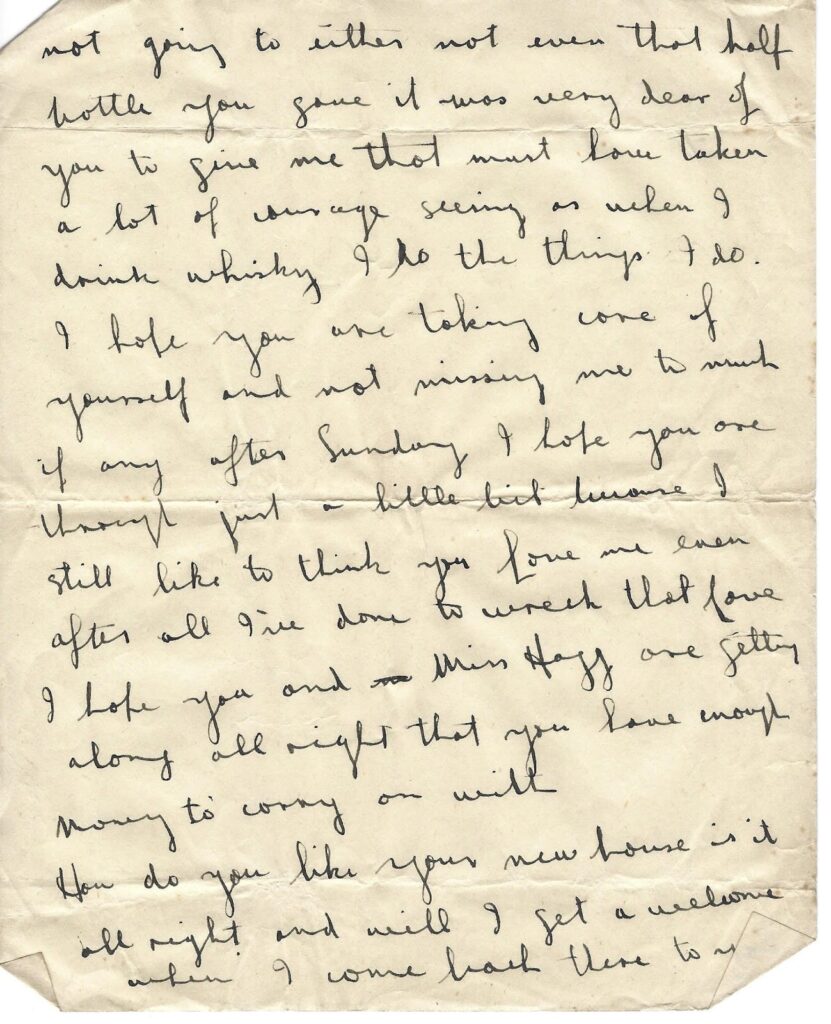 not going to either not even that half
bottle you gave it was very dear of
you to give me that must have taken
a lot of courage seeing as when I
drink whisky I do the things I do.
I hope you are taking care of
yourself and not missing me to much
if any after Sunday I hope you are
through just a little bit because I
still like to think you love me even
after all I've done to wreck that love
I hope you and Miss Hagg are getting
along all right that you have enough
money to carry on with
How do you like your new house is it
all right and will I get a welcome
when I come back there to